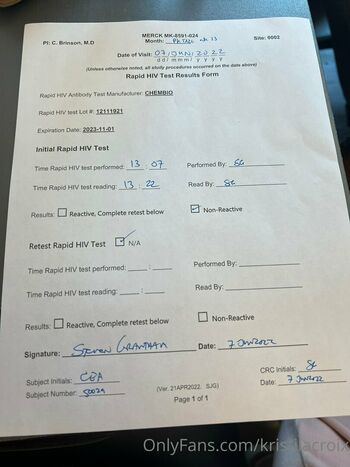 MERCK MK-8591-024
PI: C. Brinson, M.D Month: Site: 0002
Date of Visit: 07/JUN/2022
dd/ mmm/ y y y y
(Unless otherwise noted, all study procedures occurred on the date above)
Rapid HIV Test Results Form
Rapid HIV Antibody Test Manufacturer: CHEMBIO
Rapid HIV test Lot #: 12111921
Expiration Date: 2023-11-01
Initial Rapid HIV Test
Time Rapid HIV test performed: 13 : 07 Performed By: SG
Time Rapid HIV test reading: 13 : 22 Read By: SG
Results: Reactive, Complete retest below Non-Reactive
Retest Rapid HIV Test N/A
Time Rapid HIV test performed: ___:___ Performed By:
Time Rapid HIV test reading: ___:___ Read By:
Results: Reactive, Complete retest below Non-Reactive
Signature: Steven Grantham Date: 7 Jun2022
CRC Initials: SG
Subject Initials: CEA Date: 7 Jun2022
Subject Number: (Ver. 21APR2022. SJG)
Page 1 of 1
OnlyFans.com/kris